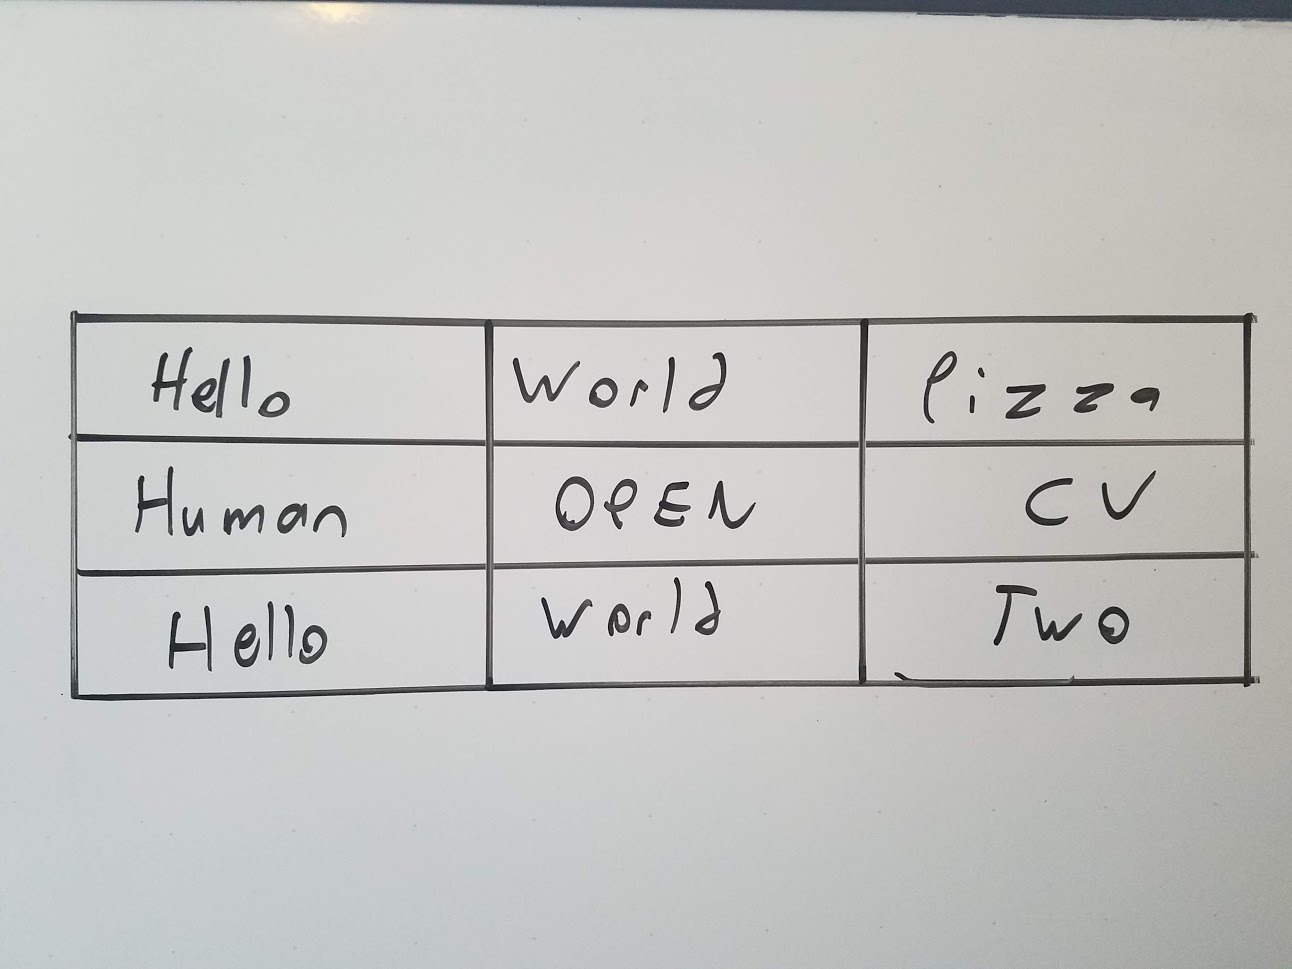 Hello World Pizza
Human OPEN CV
Hello World Two